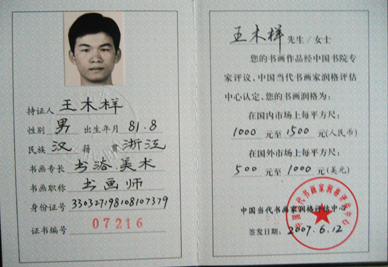 持证人 王木样
性别 男 出生年月 81.8
民族 汉 籍贯 浙江
书画专长 书法.美术
书画职称 书画师
身份证号 330327198108107379
证书编号 07216
王木样 先生/女士
您的书画作品经中国书院专
家评议，中国当代书画家润格评估
中心认定，您的书画润格为：
在国内市场上每平方尺：
1000 元至 1500 元(人民币)
在国外市场上每平方尺：
500 元至 1000 (美元)
中国当代书画家润格评估中心
签发日期：2007.6.12